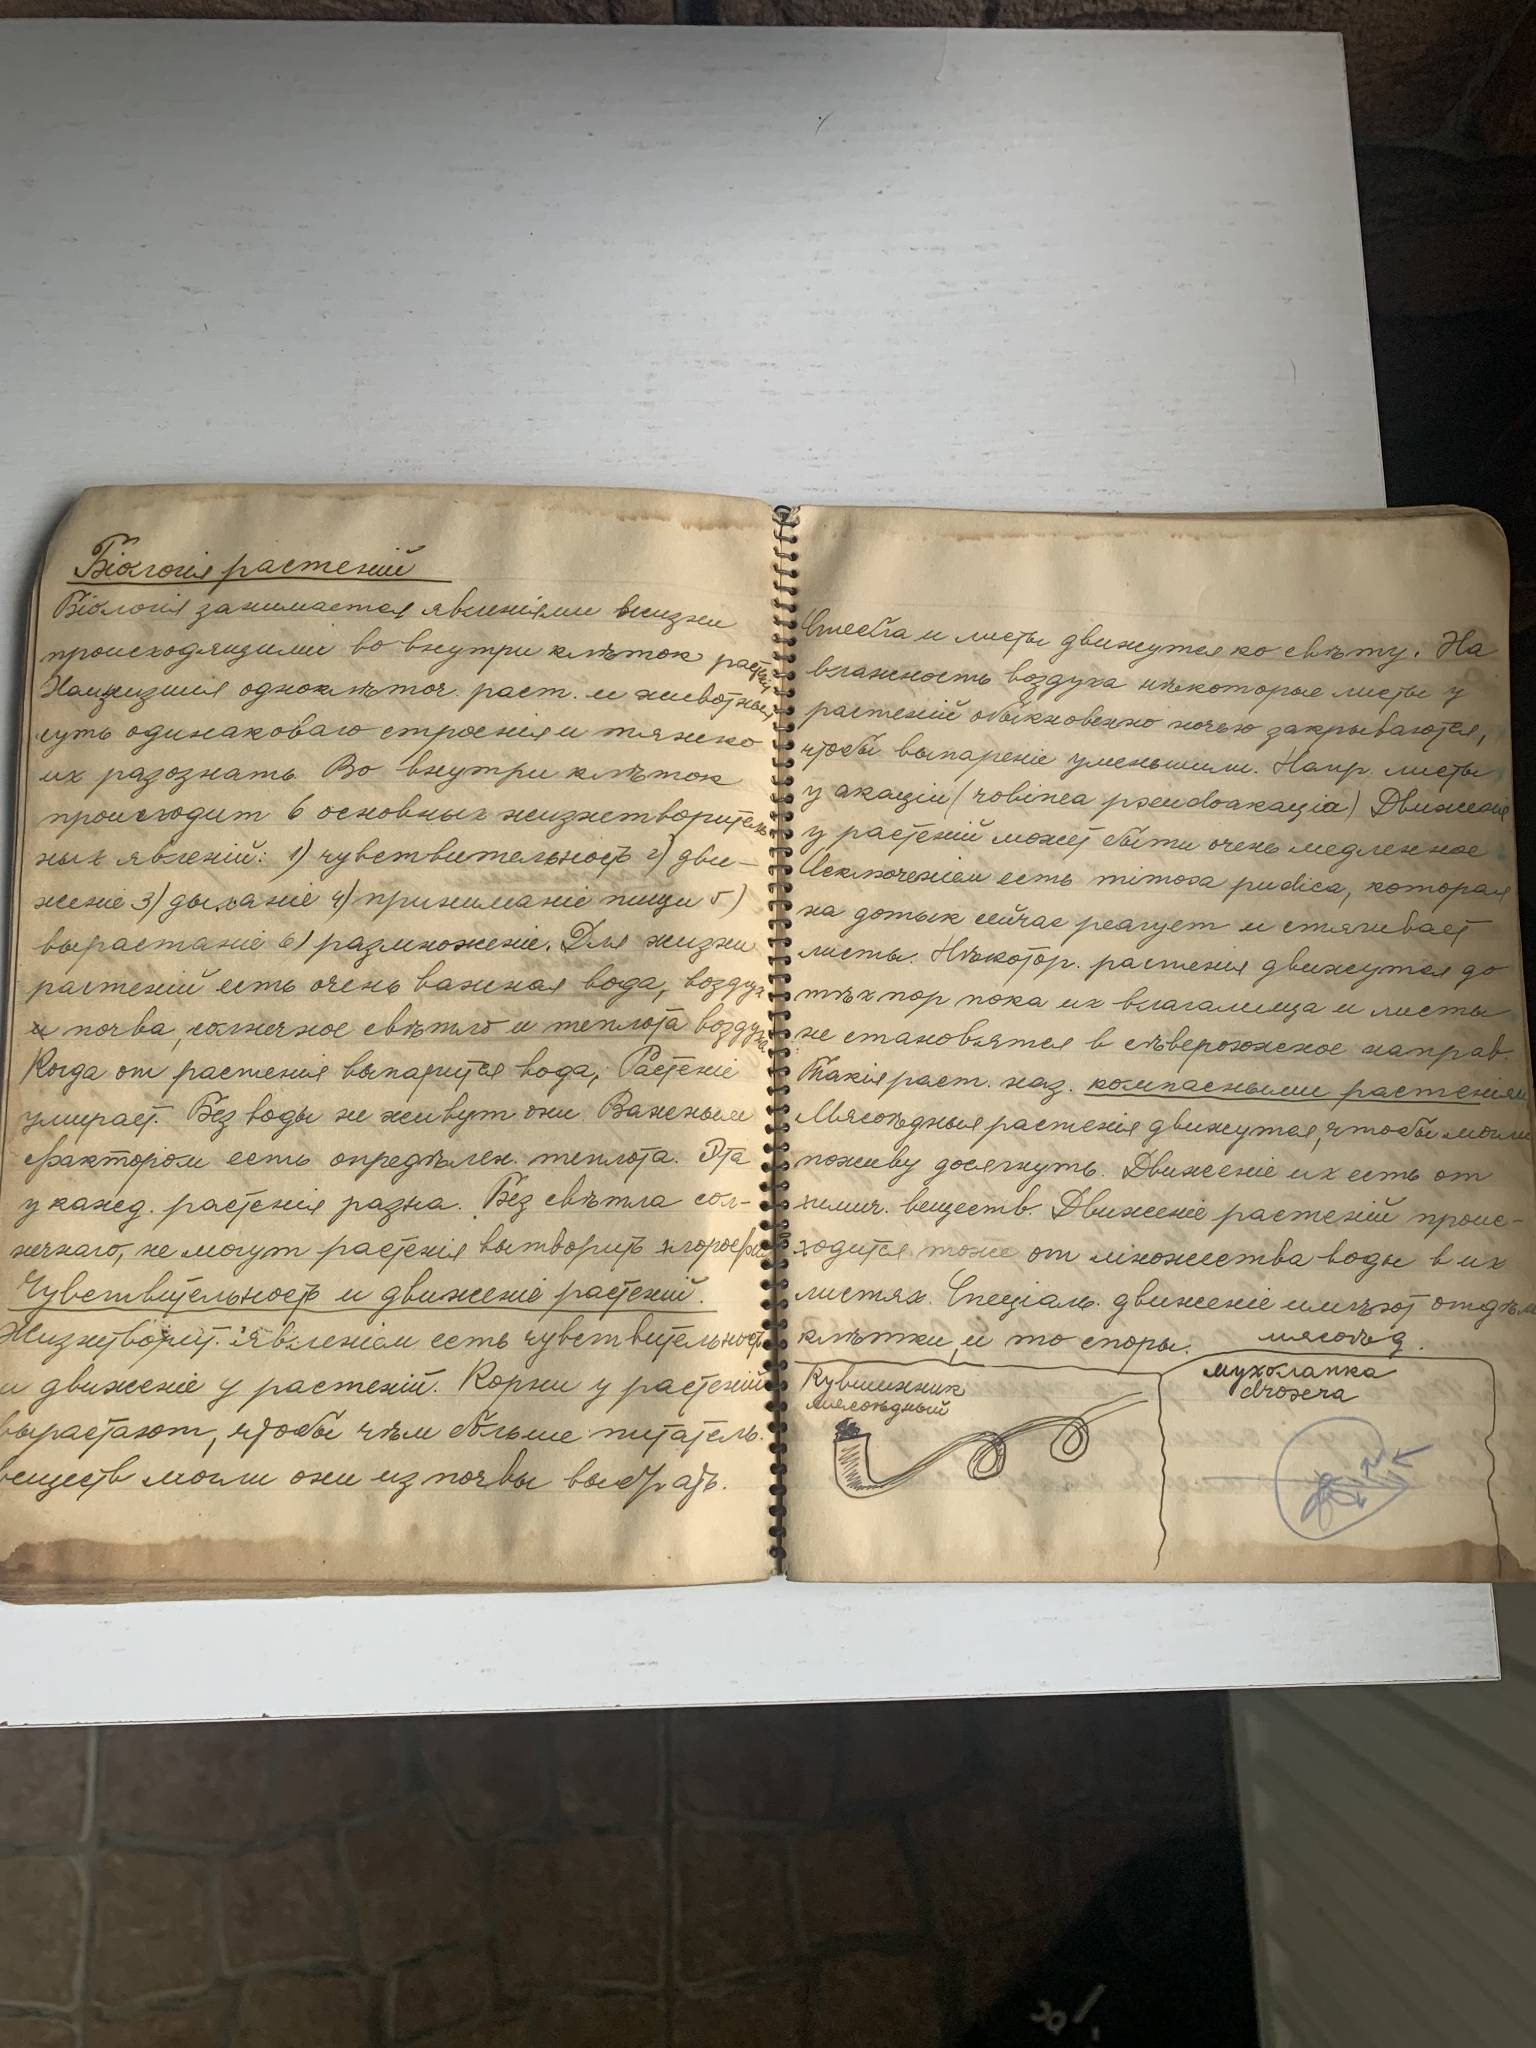 Біологія растеній
Біологія занимается явленіями жизни
происходящими во внутри клѣток растен.
Наинизшія одноклѣточ. раст. и животныя
суть одинаковаго строенія и тяжко
их разознать. Во внутри клѣток
происходит 6 основных жизнетворитель
ных явленій: 1) чувствительность 2) дви-
женіе 3) дыханіе 4)приниманіе пищи 5)
вырастаніе 6) размноженіе. Для жизни
растеній есть очень важная вода, воздух
и почва, солнечное свѣтло и теплота воздуха
Когда от растенія выпарится вода, Растеніе
умирает. Без воды не живут они. Важным
фактором есть опредѣлен. теплота. Эта
у кажд. растенія разна. Без свѣтла сол-
нечнаго, не могут растенія вытворить хлорофил
Чувствительность и движеніе растеній.
Жизнетворит. явленіем есть чувствительность
и движеніе у растеній. Корни у растеній
вырастают, чтобы чѣм больше питатель.
веществ могли они из почвы выбрать.
Стебла и листы движутся ко свѣту. На
влажность воздуха нѣкоторые листы у
растеній обыкновенно ночью закрываются,
чтобы выпареніе уменьшили. Напр. листы
у акаціи (robinea pseudoакація) Движеніе
у растеній может быти очень медленное
Исключеніем есть mimosa pudica, которая
на дотык сейчас реагует и стягивает
листы. Нѣкотор. растенія движутся до
тѣх пор пока их влагалища и листы
не становятся в сѣвероюжное направ.
Такія раст. наз. компасными растеніями
Мясоѣдныя растенія движутся, чтобы могли
поживу досягнуть. Движеніе их есть от
химич. веществ. Движеніе растеній проис-
ходится тоже от множества воды в их
листях. Спеціаль. движеніе имѣют отдѣл.
клѣтки, и то споры. мясоѣд.
Кувшинник
мясоѣдный
мухолапка